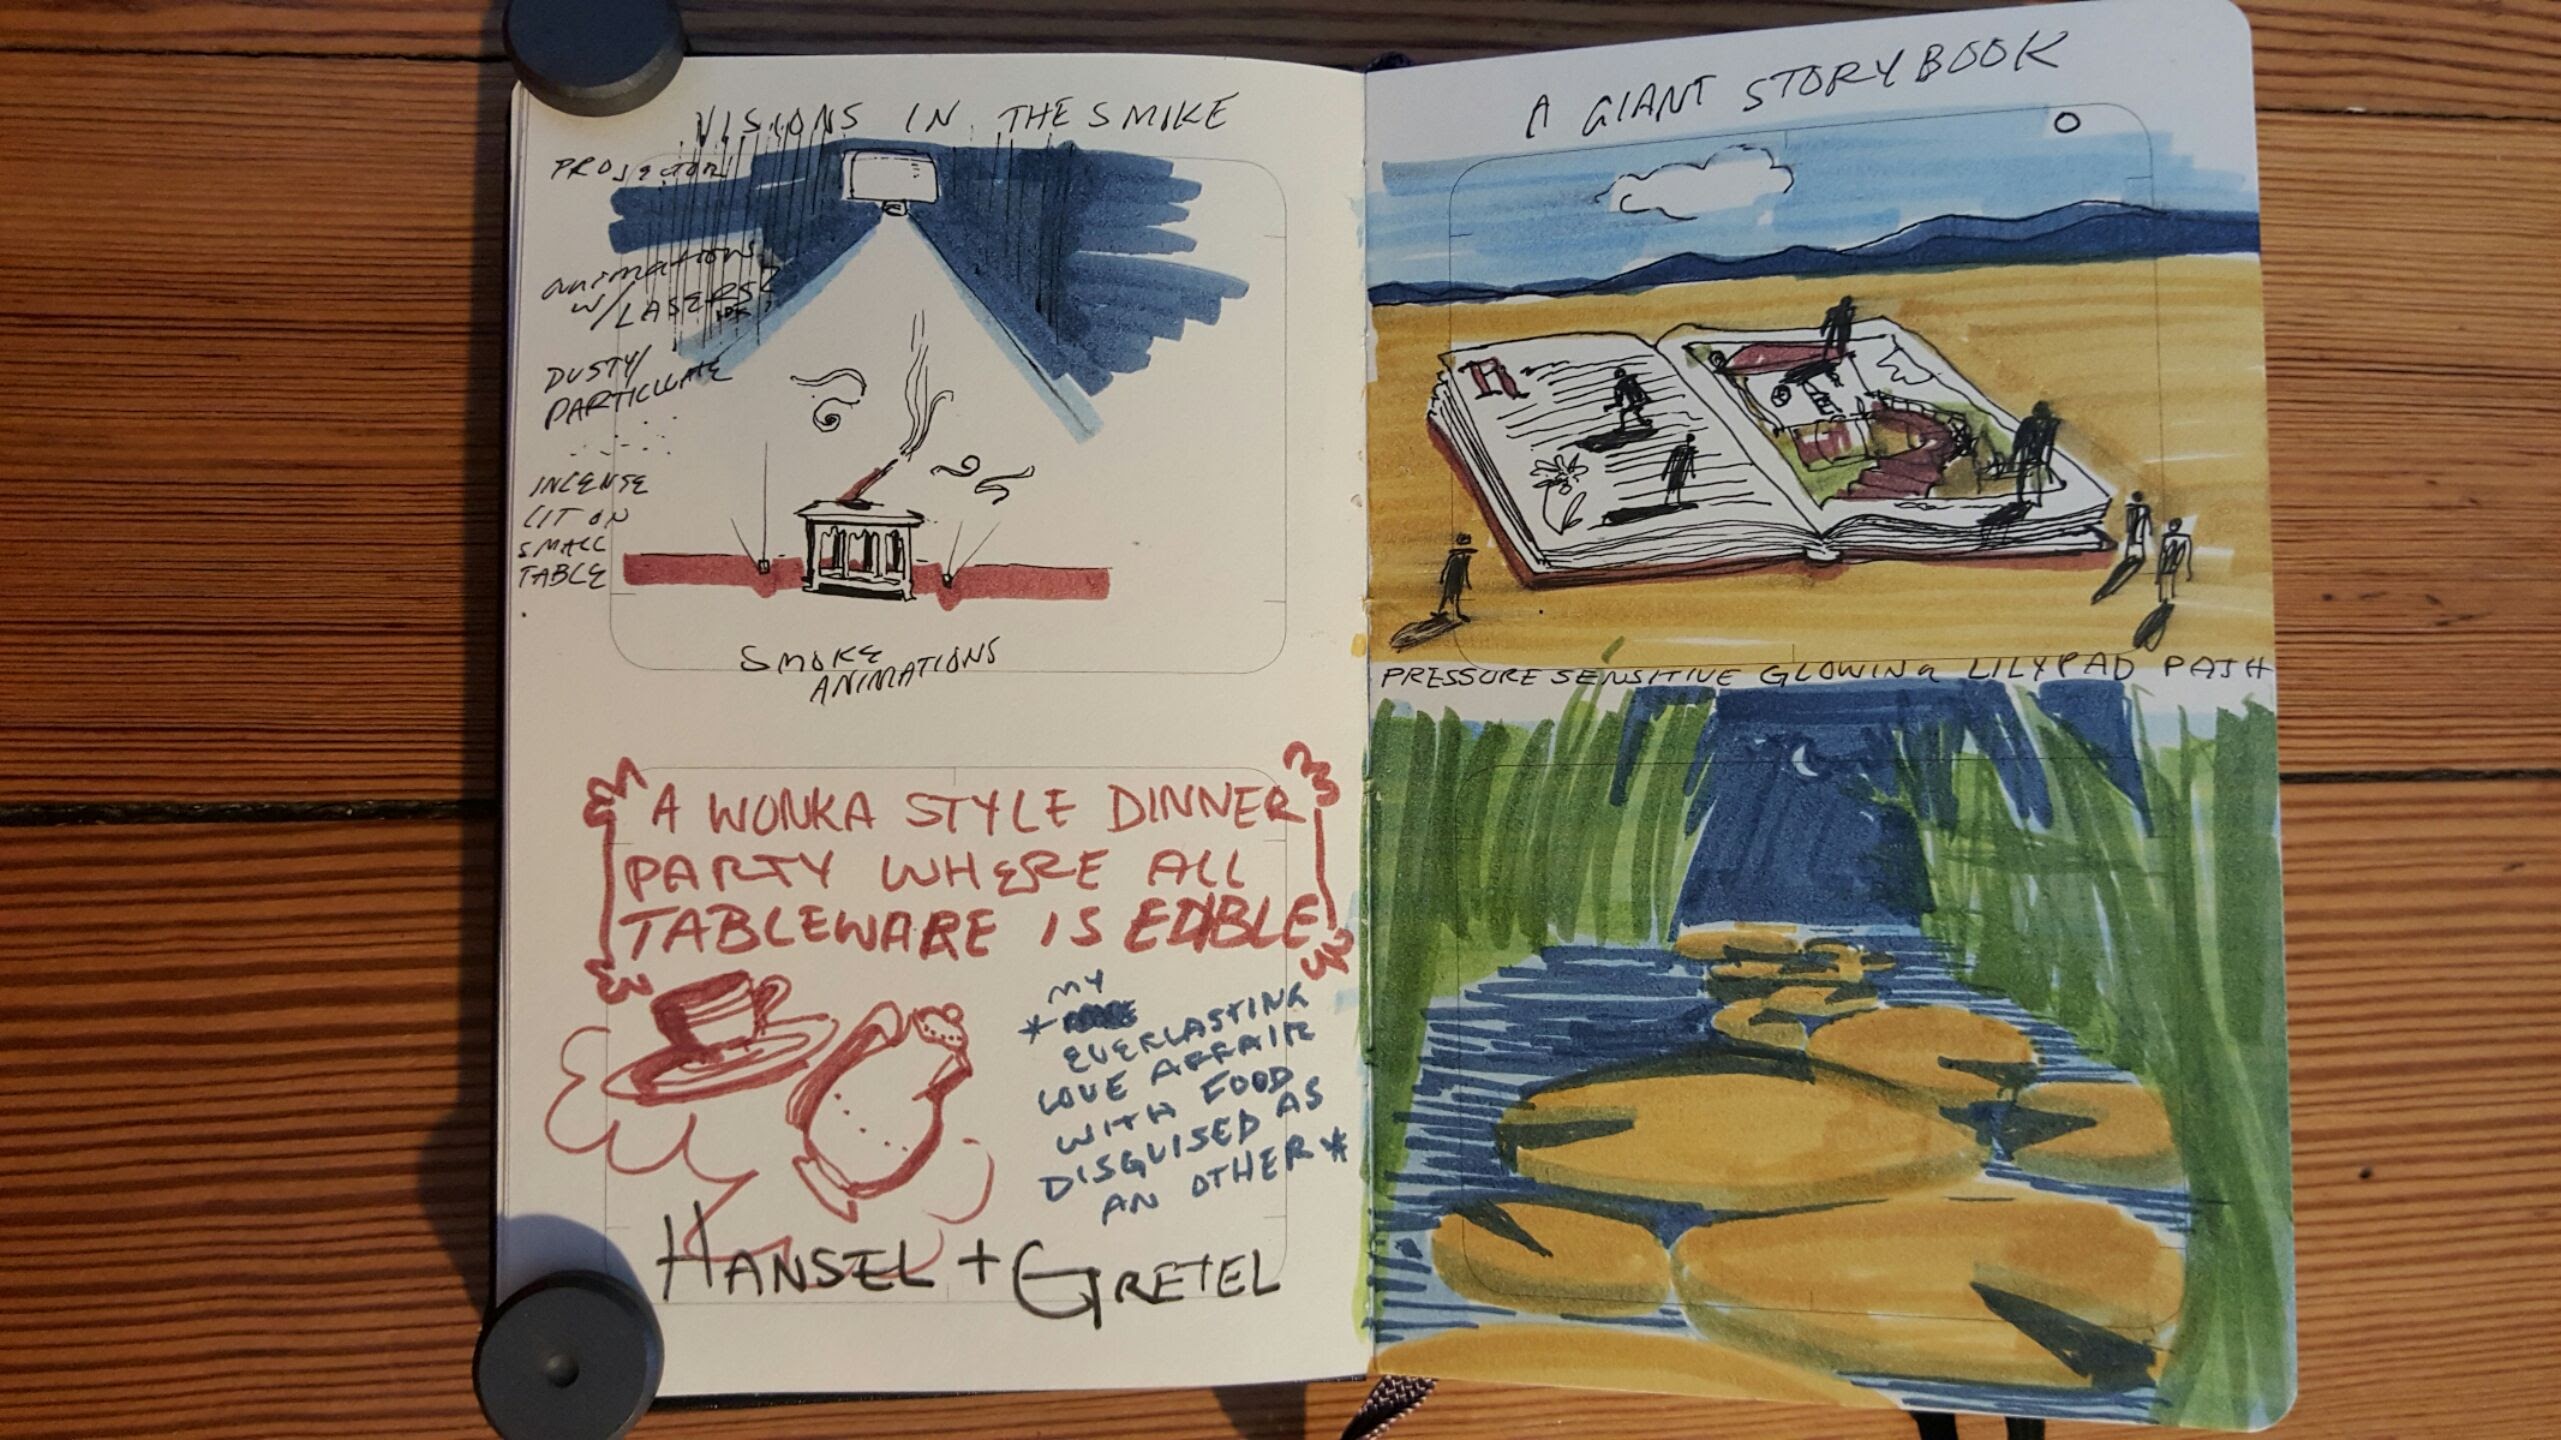 VISIONS IN THE SMIKE
PROJECTOR
animations
w/LASERS?
DUSTY/
PARTICULATE
INCENSE
LIT ON
SMALL
TABLE
SMOKE
ANIMATIONS
A WONKA STYLE DINNER
PARTY WHERE ALL
TABLEWARE IS EDIBLE
MY
*
EVERLASTING
LOVE AFFAIR
WITH FOOD
DISGUISED AS
AN OTHER*
HANSEL + GRETEL
A GIANT STORYBOOK
R
PRESSURE SENSITIVE GLOWING LILYPAD PATH